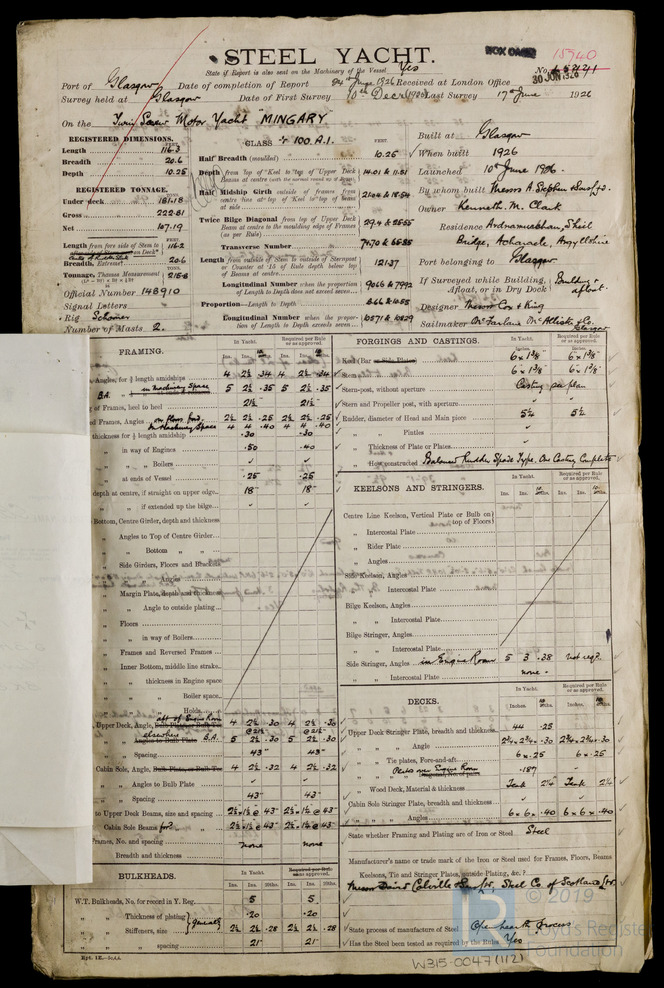 STEEL YACHT.
BOX 15940
State if Report is also sent on the Machinery of the Vessel Yes
No.
Port of Glasgow Date of completion of Report 24th June 1926 Received at London Office 30 JUN 1926
Survey held at Glasgow Date of First Survey 10th Dec Last Survey 17th June 1926
On the Twin Screw Motor Yacht MINGARY
REGISTERED DIMENSIONS.
FEET.
Length 116.3
Breadth 20.6
Depth 10.25
REGISTERED TONNAGE.
TONS.
Under deck 181.18
Gross 222.81
Net 107.19
FEET.
Length from fore side of Stem to 116.2
Breadth, Extreme 20.6
Tonnage, Thames Measurement 215.8
Official Number 148910
Signal Letters
Rig Schooner
Number of Masts 2.
CLASS 100.A.1.
Half Breadth (moulded) 10.25
Depth from top of Keel to top of Upper Deck Beams at centre 14.01 & 11.51
Half Midship Girth of frames from centre line at top of Keel to top of beams at side
Twice Bilge Diagonal from top of Upper Deck Beam at centre to the moulding edge of Frames (as per Rule)
Transverse Number
Length from outside of Stem to outside of Sternpost or Counter at .15 of Hole depth below top of Beams at centre 121.37
Longitudinal Number when the proportion of Length to Depth does not exceed seven 9066 & 7992
Proportion—Length to Depth
Longitudinal Number when the proportion of Length to Depth exceeds seven
Built at Glasgow
When built 1926
Launched 10th June 1926.
By whom built Messrs A. Stephen & Sons Ltd.
Owner Kenneth. M. Clark
Residence Ardnamurchan, Shiel
Bridge, Acharacle, Argyllshire
Port belonging to Glasgow
If Surveyed while Building, Afloat, or in Dry Dock Building & afloat.
Designer Messrs Cox & King
Sailmaker McFarlane McAllister & Co Glasgow
FRAMING.
In Yacht. Required per Rule or as approved.
Angles, for ½ length amidships 4 2½ .34 4 2½ .34
B.A. in machinery Space 5 2½ .35 5 2½ .35
of Frames, heel to heel 21½ 21½
d Frames, Angles on floors fwd. 2½ 2½ .25 2½ 2½ .25
In Machinery Space 4 4 .40 4 4 .40
thickness for ½ length amidship .30 .30
in way of Engines .50 .40
" Boilers
at ends of Vessel .25 .25
depth at centre, if straight on upper edge 18" 18"
" if extended up the bilge
Bottom, Centre Girder, depth and thickness
Angles to Top of Centre Girder
" Bottom " "
Side Girders, Floors and Brackets
" Angles
Margin Plate, depth and thickness
" Angle to outside plating
Floors
" in way of Boilers
Frames and Reversed Frames
Inner Bottom, middle line strake
" thickness in Engine space
" Boiler space
" Holds
aft of Engine Room
Upper Deck, Angle, 4 2½ .30 4 2½ .30
@ 21½" @ 21½"
elsewhere B.A. 5 2½ .30 5 2½ .30
" Spacing 43" 43"
Cabin Sole, Angle 4 2½ .32 4 2½ .32
" Angles to Bulb Plate
" Spacing 43" 43"
to Upper Deck Beams, size and spacing 2½ × 1½ @ 43" 2½ × 1½ @ 43"
Cabin Sole Beams for 2½ × 1½ @ 43" 2½ × 1½ @ 43"
Frames, No. and spacing none none
Breadth and thickness
BULKHEADS.
In Yacht. Required per Rule or as approved.
W.T. Bulkheads, No. for record in Y. Reg. 5 5
" Thickness of plating generally .20 .20
" Stiffeners, size 2½ 2½ .28 2½ 2½ .28
" spacing 21" 21"
Rpt. 1E.
FORGINGS AND CASTINGS.
In Yacht. Required per Rule or as approved.
Keel (Bar 6 × 1⅜" 6 × 1⅜"
Stem 6 × 1⅜" 6 × 1⅜"
Stern-post, without aperture Casting as per plan
Stern and Propeller post, with aperture
Rudder, diameter of Head and Main piece 5¼ 5¼
" Pintles
" Thickness of Plate or Plates
" How constructed Balanced Rudder Spade Type. One Casting Complete
KEELSONS AND STRINGERS.
In Yacht. Required per Rule or as approved.
Centre Line Keelson, Vertical Plate or Bulb on top of Floors
" Intercostal Plate
" Rider Plate
" Angles
Side Keelson, Angles
" Intercostal Plate
Bilge Keelson, Angles
" Intercostal Plate
Bilge Stringer, Angles
" Intercostal Plate
Side Stringer, Angles in Engine Room 5 3 .38 not reqd.
" Intercostal Plate none
DECKS.
In Yacht. Required per Rule or as approved.
Inches. Inches.
Upper Deck Stringer Plate, breadth and thickness 44 .25
" Angle 2¾ × 2¾ × .30 2¾ × 2¾ × .30
" Tie plates, Fore-and-aft 6 × .25 6 × .25
Plates over Engine Room .187
" Wood Deck, Material & thickness Teak 2¼ Teak 2¼
Cabin Sole Stringer Plate, breadth and thickness
" Angles 6 × 6 × .40 6 × 6 × .40
State whether Framing and Plating are of Iron or Steel Steel
Manufacturer's name or trade mark of the Iron or Steel used for Frames, Floors, Beams
Keelsons, Tie and Stringer Plates, outside Plating, &c.?
Messrs David Colville & Sons Ltd, Steel Co. of Scotland Ltd.
State process of manufacture of Steel Open hearth process
Has the Steel been tested as required by the Rules Yes
© 2019
Lloyd's Register
Foundation
W315-0047 (1/2)